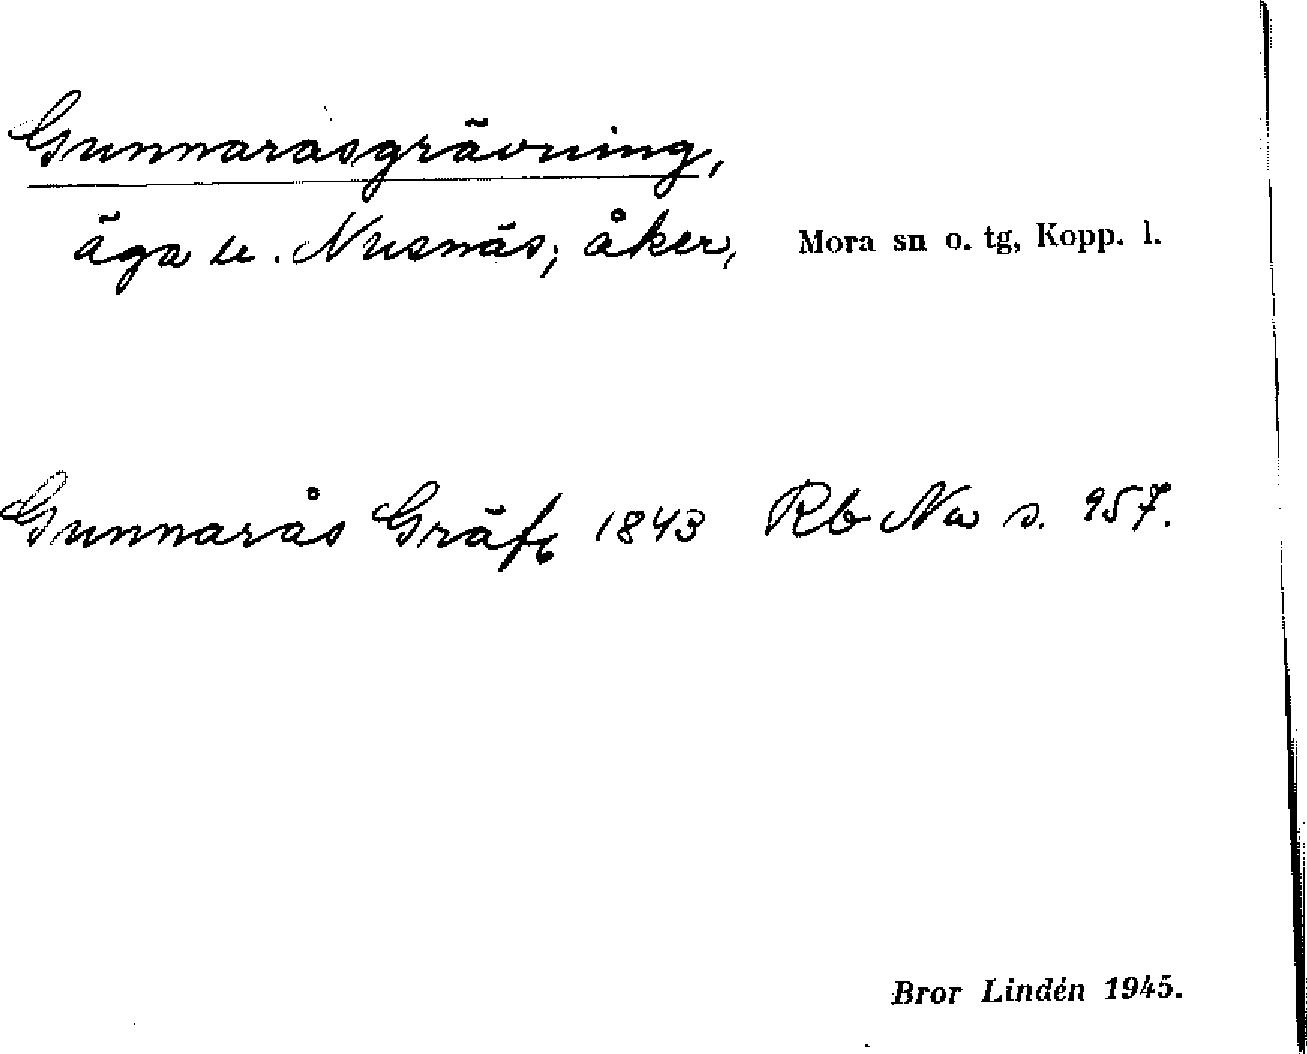 Gunnarasgrävning,
äga u. Nusnäs; åker, Mora sn o. tg, Kopp. l.
Gunnarås Gräfn 1843 Rb Na s. 957.
Bror Lindén 1945.